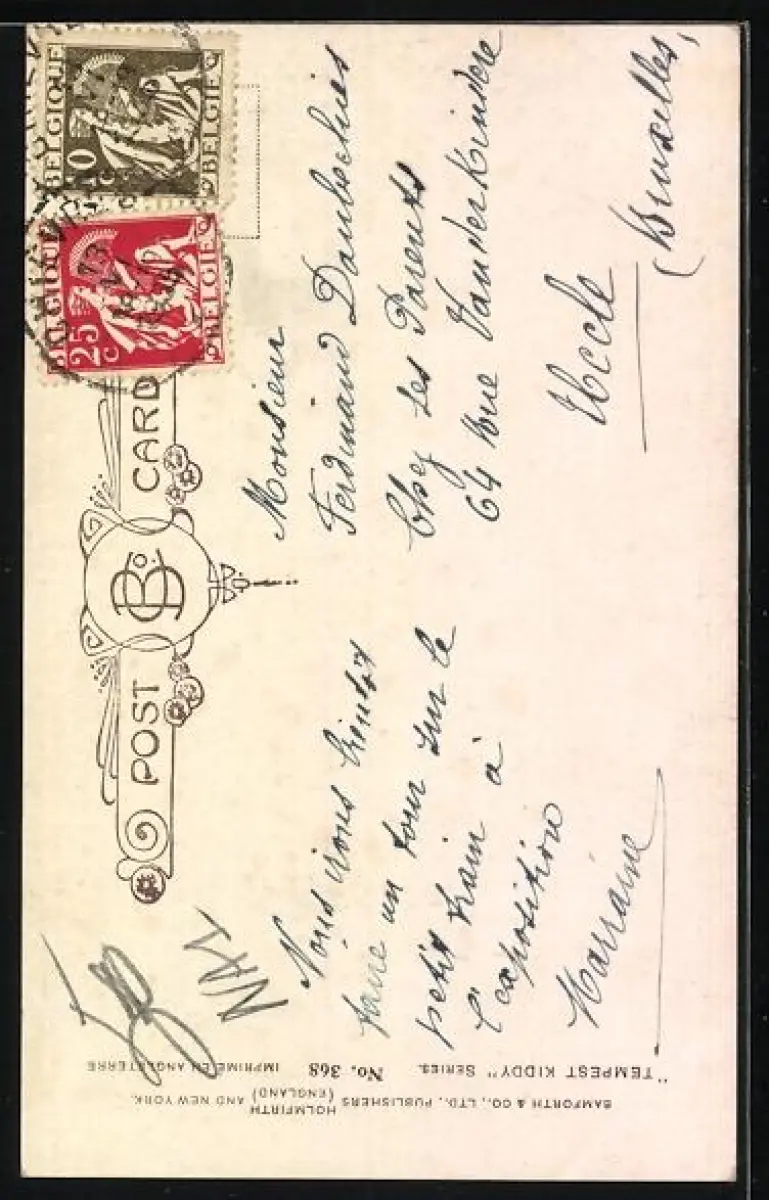 POST CARD
B Co.
BELGIQUE
10
BELGIE
BELGIQUE
25 C
BELGIE
Nous irons bientôt
faire un tour sur le
petit train à
l'exposition
Marraine
Monsieur
Ferdinand Daubechies
Chez ses Parents
64 Rue Vanderkindere
Uccle
(Bruxelles,
"TEMPEST KIDDY" SERIES. No. 368 IMPRIMÉ EN ANGLETERRE
BAMFORTH & CO., LTD., PUBLISHERS HOLMFIRTH (ENGLAND) AND NEW YORK.